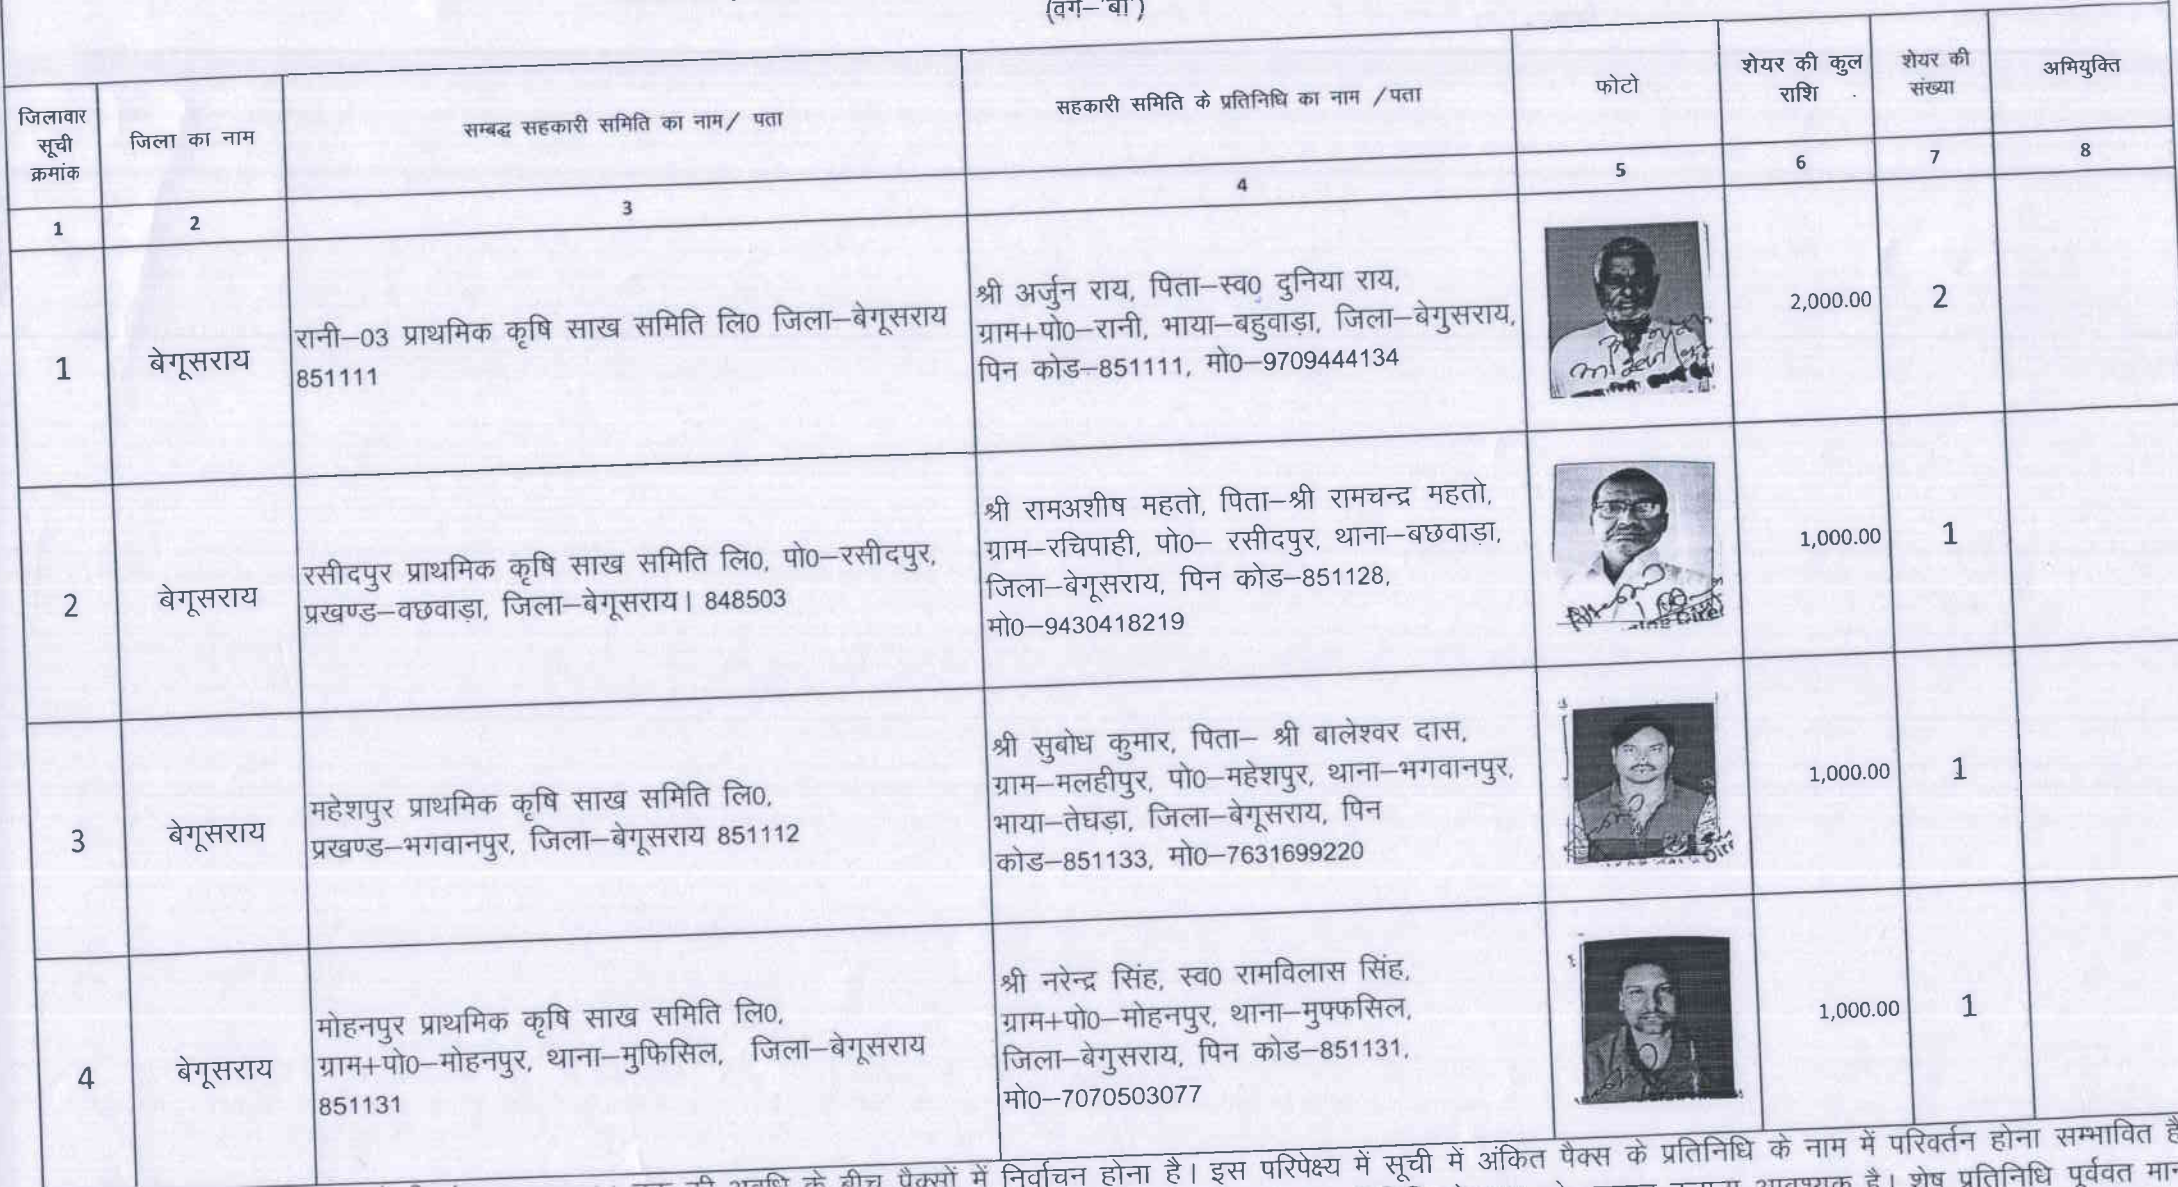 (वर्ग–'बी')
जिलावार
सूची
क्रमांक
जिला का नाम
सम्बद्ध सहकारी समिति का नाम/ पता
सहकारी समिति के प्रतिनिधि का नाम /पता
फोटो
शेयर की कुल
राशि
शेयर की
संख्या
अभियुक्ति
1
2
3
4
5
6
7
8
1
बेगूसराय
रानी–03 प्राथमिक कृषि साख समिति लि0 जिला–बेगूसराय
851111
श्री अर्जुन राय, पिता–स्व0 दुनिया राय,
ग्राम+पो0–रानी, भाया–बहुवाड़ा, जिला–बेगुसराय,
पिन कोड–851111, मो0–9709444134
2,000.00
2
2
बेगूसराय
रसीदपुर प्राथमिक कृषि साख समिति लि0, पो0–रसीदपुर,
प्रखण्ड–वछवाड़ा, जिला–बेगूसराय। 848503
श्री रामअशीष महतो, पिता–श्री रामचन्द्र महतो,
ग्राम–रचिपाही, पो0– रसीदपुर, थाना–बछवाड़ा,
जिला–बेगूसराय, पिन कोड–851128,
मो0–9430418219
1,000.00
1
3
बेगूसराय
महेशपुर प्राथमिक कृषि साख समिति लि0,
प्रखण्ड–भगवानपुर, जिला–बेगूसराय 851112
श्री सुबोध कुमार, पिता– श्री बालेश्वर दास,
ग्राम–मलहीपुर, पो0–महेशपुर, थाना–भगवानपुर,
भाया–तेघड़ा, जिला–बेगूसराय, पिन
कोड–851133, मो0–7631699220
1,000.00
1
4
बेगूसराय
मोहनपुर प्राथमिक कृषि साख समिति लि0,
ग्राम+पो0–मोहनपुर, थाना–मुफिसिल, जिला–बेगूसराय
851131
श्री नरेन्द्र सिंह, स्व0 रामविलास सिंह,
ग्राम+पो0–मोहनपुर, थाना–मुफ्फसिल,
जिला–बेगुसराय, पिन कोड–851131,
मो0–7070503077
1,000.00
1
की अवधि के बीच पैक्सों में निर्वाचन होना है। इस परिपेक्ष्य में सूची में अंकित पैक्स के प्रतिनिधि के नाम में परिवर्तन होना सम्भावित है
आवश्यक है। शेष प्रतिनिधि पूर्ववत